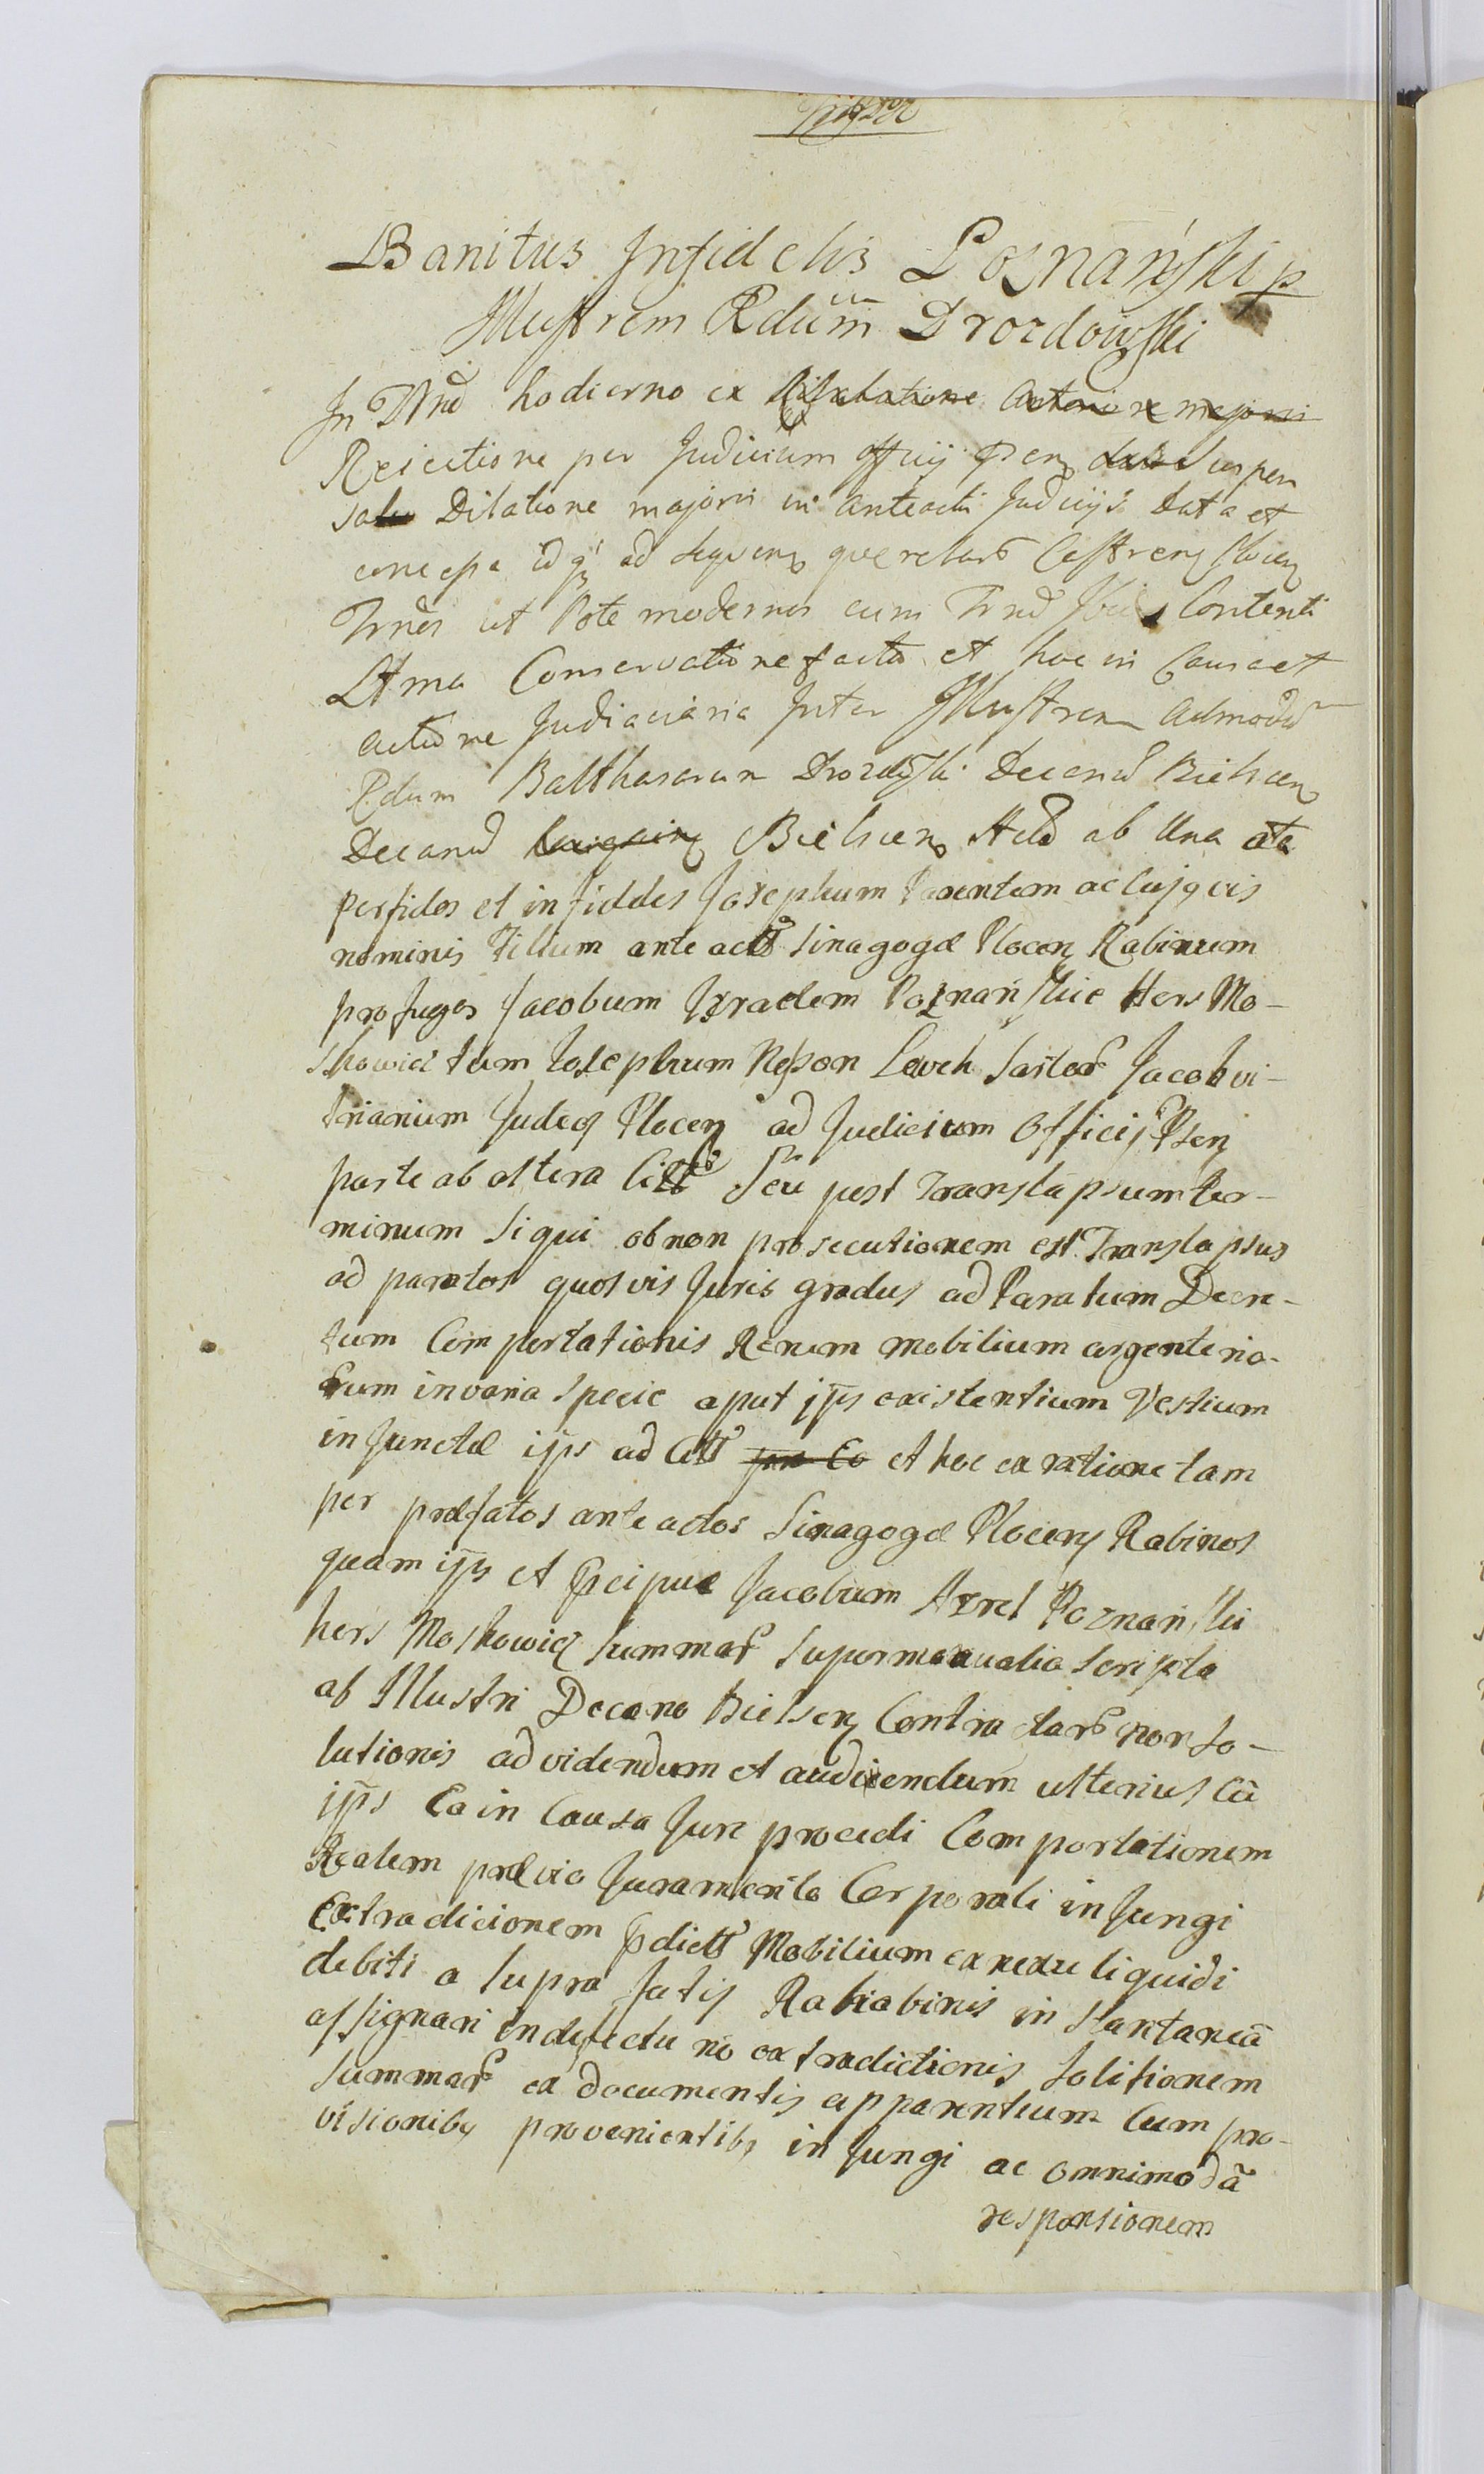 Banitus Infidelis Posnański p
Illustrem Rdum Drozdowski
In Trno hodierno ex Dilatione Actori ex majori
Rejectione per Judicium Officij Psen Suspen
sa Dilatione majori in anteactis Judicijs Data et
ad sequens querelas Castrens Plocens
Trnos ut Pote modernus cum Trno Contenti
Conservatione facta et hoc in Causa et
actione Judiciaria Inter Illustrem Admodu
Rdum Baltharem Drozdski Decanu Bielscen
Decanu Bielscen ab Una atq
perfidos et infideles Josephum Parentem ac cujqvis
nominis Filium ante actos Sinagogæ Plocen Rabinum
profugos Jacobum Izraelem Poznańskie Hers Mo-
skowicz tum Josephum Leweh Jacob vi-
trianium Judeos Plocen ad Judicium Officij Psen
parte ab altera Citt Seu post Translapsum ter-
minum si qui ob non prosecutionem est Translapsus
ad paratos quosvis Juris gradus ad Paratum Decre-
tum Comportationis Rerum mobilium argenterio-
rum in varia specie aput ips existentium Vestium
injunctæ ips ad Citt pro Eo et hoc ex ratione tam
per præfatos ante actos Sinagogæ Plocens Rabinos
quam ips et pcipue Jacobum Izrel Poznański
hers Moskowicz summar supermanualia scripta
ab Illustri Decano Bielsen Contractar non so-
lutionis ad videndum et audiendum ulterius cū
ips Ea in Causa Jure procedi Comportationem
Realem prævio Juramento Corporali injungi
Extradicionem pdictt Mobilium ex nexu liquidi
debiti a supra fatis Rabiabinis in stantaneā
assignari in defectu no extradictionis Solitionem
summar ex documentis apparentium Cum pro-
visionibq provenientibq injungi ac omnimodā
responsionem